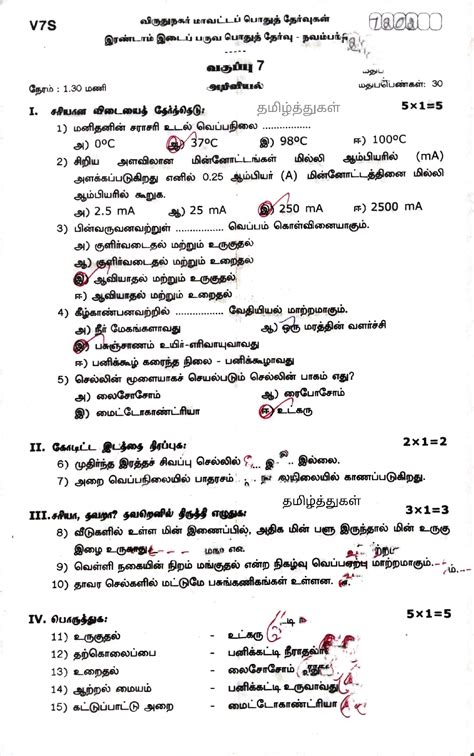 V7S விருதுநகர் மாவட்டப் பொதுத் தேர்வுகள்
இரண்டாம் இடைப் பருவ பொதுத் தேர்வு - நவம்பர்
வகுப்பு 7
நேரம் : 1.30 மணி அறிவியல் மதிப்பெண்கள்: 30
I. சரியான விடையைத் தேர்ந்தெடு: தமிழ்த்துகள் 5×1=5
1) மனிதனின் சராசரி உடல் வெப்பநிலை ................
அ) 0°C ஆ) 37°C இ) 98°C ஈ) 100°C
2) சிறிய அளவிலான மின்னோட்டங்கள் மில்லி ஆம்பியரில் (mA)
அளக்கப்படுகிறது எனில் 0.25 ஆம்பியர் (A) மின்னோட்டத்தினை மில்லி
ஆம்பியரில் கூறுக.
அ) 2.5 mA ஆ) 25 mA இ) 250 mA ஈ) 2500 mA
3) பின்வருவனவற்றுள் ................ வெப்பம் கொள்வினையாகும்.
அ) குளிர்வடைதல் மற்றும் உருகுதல்
ஆ) குளிர்வடைதல் மற்றும் உறைதல்
இ) ஆவியாதல் மற்றும் உருகுதல்
ஈ) ஆவியாதல் மற்றும் உறைதல்
4) கீழ்காண்பனவற்றில் ................. வேதியியல் மாற்றமாகும்.
அ) நீர் மேகங்களாவது ஆ) ஒரு மரத்தின் வளர்ச்சி
இ) பசுஞ்சாணம் உயிர்-எரிவாயுவாவது
ஈ) பனிக்கூழ் கரைந்த நிலை - பனிக்கூழாவது
5) செல்லின் மூளையாகச் செயல்படும் செல்லின் பாகம் எது?
அ) லைசோசோம் ஆ) ரைபோசோம்
இ) மைட்டோகாண்ட்ரியா ஈ) உட்கரு
II. கோடிட்ட இடத்தை நிரப்புக: 2×1=2
6) முதிர்ந்த இரத்தச் சிவப்பு செல்லில் இல்லை.
7) அறை வெப்பநிலையில் பாதரசம் நிலையில் காணப்படுகிறது.
தமிழ்த்துகள்
III. சரியா, தவறா? தவறெனில் திருத்தி எழுதுக: 3×1=3
8) வீடுகளில் உள்ள மின் இணைப்பில், அதிக மின் பளு இருந்தால் மின் உருகு
இழை உருகாது
9) வெள்ளி நகையின் நிறம் மங்குதல் என்ற நிகழ்வு வெப்ப மாற்றமாகும்.
10) தாவர செல்களில் மட்டுமே பசுங்கணிகங்கள் உள்ளன.
IV. பொருத்துக: 5×1=5
11) உருகுதல் - உட்கரு
12) தற்கொலைப்பை - பனிக்கட்டி நீராதல்
13) உறைதல் - லைசோசோம்
14) ஆற்றல் மையம் - பனிக்கட்டி உருவாவது
15) கட்டுப்பாட்டு அறை - மைட்டோகாண்ட்ரியா